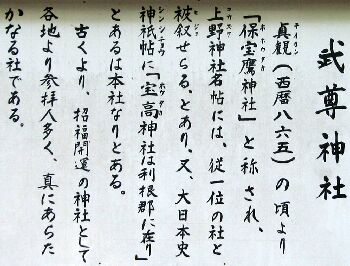 武尊神社
貞観（西暦八六五）の頃より
「保宝鷹神社」と称され、
上野神社名帖には、従一位の社と
被叙せらる。とあり、又、大日本史
神祇帖に「宝高神社は利根郡に在り」
とあるは本社なりとある。
古くより、招福開運の神社として
各地より参拝人多く、真にあらた
かなる社である。